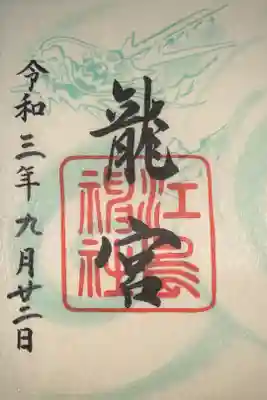 龍宮
江島神社
令和三年九月廿二日